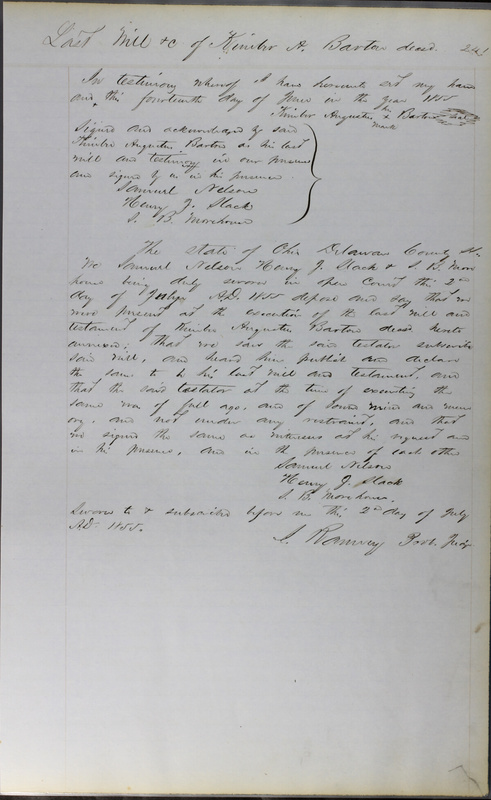 Last Will &c of Kimber A. Barton decd. 241
In testimony whereof I have hereunto set my hand
and this fourteenth day of June in the year 1855
his
Kimber Augustus x Barton seal
mark
Signed and acknowledged by said
Kimber Augustus Barton as his last
will and testimony in our presence
and signed by us in his presence
Samuel Nelson
Henry J. Slack
S. B. Morehouse
The State of Ohio Delaware County SS
We Samuel Nelson Henry J. Slack & S. B. More
house being duly sworn in open Court this 2nd
day of July A.D. 1855 depose and say that we
were present at the execution of the last will and
testament of Kimber Augustus Barton decd hereto
annexed; that we saw the said testator subscribe
said will, and heard him publish and declare
the same to be his last will and testament, and
that the said testator at the time of executing the
same was of full age, and of sound mind and mem
ory, and not under any restraint, and that
we signed the same as witnesses at his request and
in his presence, and in the presence of each other
Samuel Nelson
Henry J. Slack
S. B. Morehouse.
Sworn to & subscribed before me this 2nd day of July
AD 1855.
Ramsey Prob. Judge